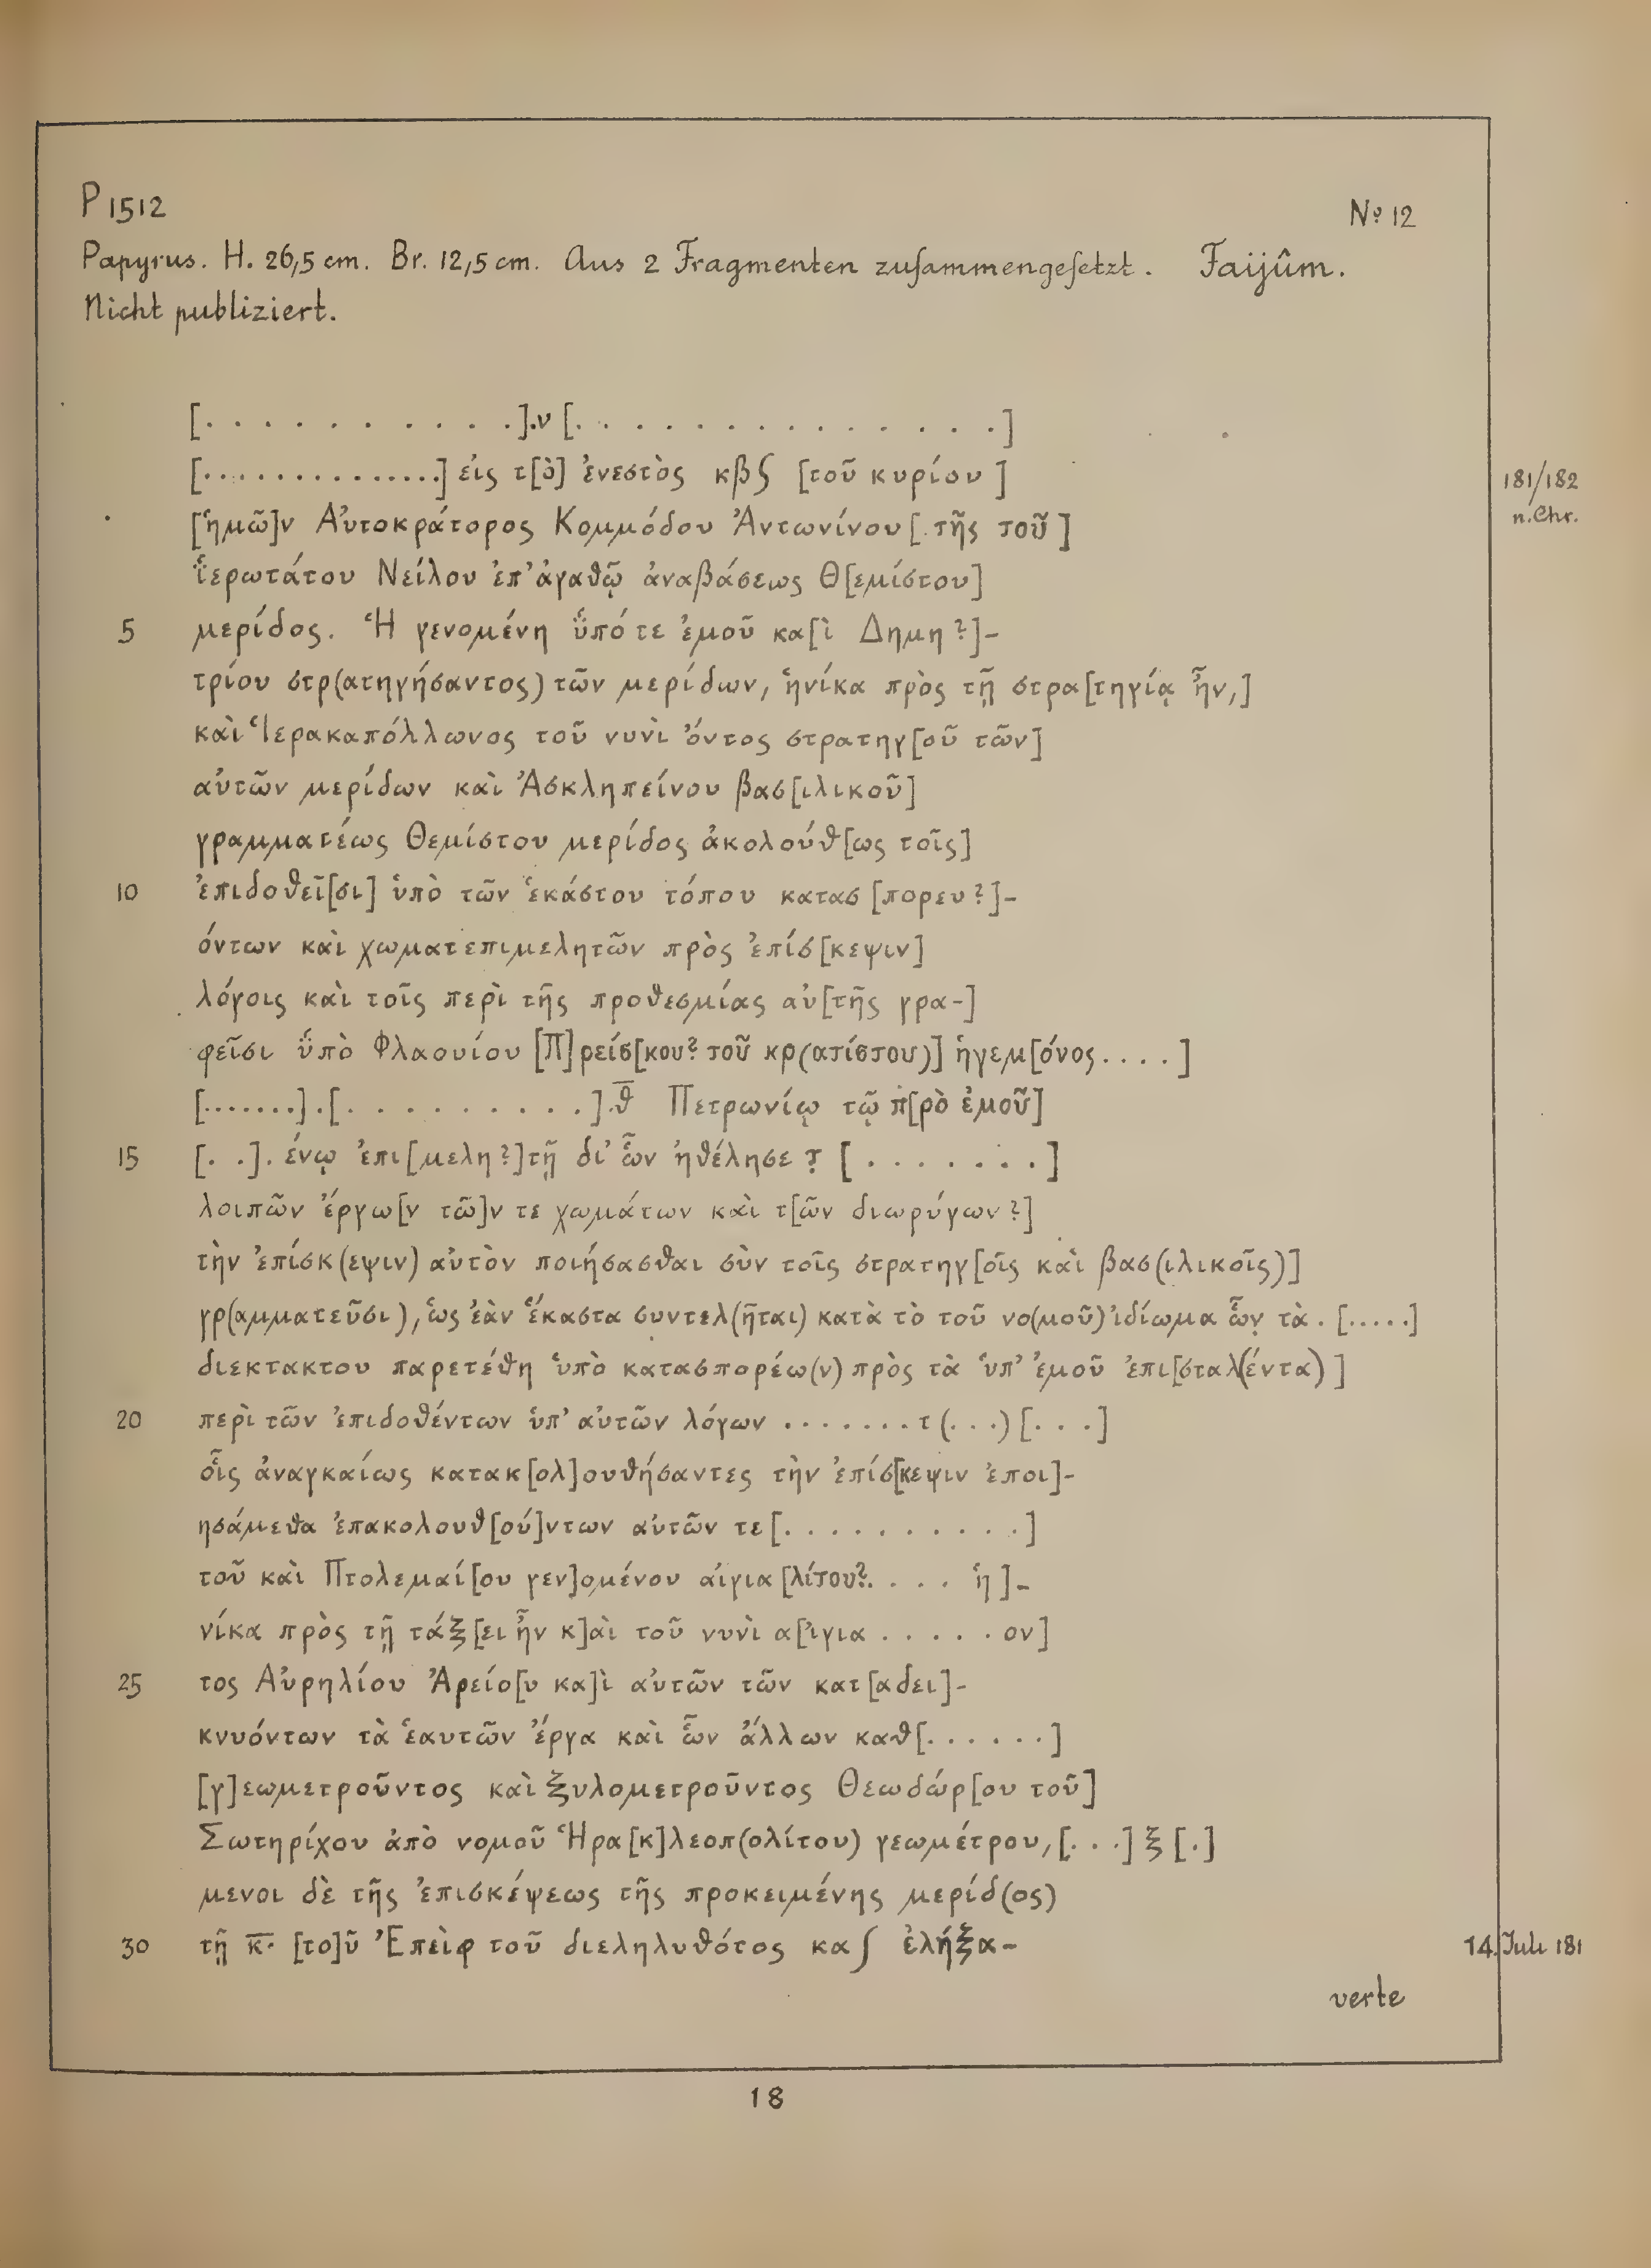 P 1512
No 12
Papyrus. H. 26,5 cm. Br. 12,5 cm. Aus 2 Fragmenten zuſammengeſetzt. Faijûm.
Nicht publiziert.
[. . . . . . . . . . .].ν [. . . . . . . . . . . . . .]
[..............] εἰς τ[ὸ] ἐνεστὸς κβʃ [τοῦ κυρίου]
181/182
n. Chr.
[ἡμῶ]ν Αὐτοκράτορος Κομμόδου Ἀντωνίνου [τῆς τοῦ]
ἱερωτάτου Νείλου ἐπ' ἀγαθῷ ἀναβάσεως Θ[εμίστου]
5 μερίδος. Ἡ γενομένη ὑπό τε ἐμοῦ κα[ὶ Δημη?]-
τρίου στρ(ατηγήσαντος) τῶν μερίδων, ἡνίκα πρὸς τῇ στρα[τηγίᾳ ἦν,]
καὶ Ἱερακαπόλλωνος τοῦ νυνὶ ὄντος στρατηγ[οῦ τῶν]
αὐτῶν μερίδων καὶ Ἀσκληπείνου βασ[ιλικοῦ]
γραμματέως Θεμίστου μερίδος ἀκολούθ[ως τοῖς]
10 ἐπιδοθεῖ[σι] ὑπὸ τῶν ἑκάστου τόπου κατασ[πορευ?]-
όντων καὶ χωματεπιμελητῶν πρὸς ἐπίσ[κεψιν]
λόγοις καὶ τοῖς περὶ τῆς προθεσμίας αὐ[τῆς γρα-]
φεῖσι ὑπὸ Φλαουίου [Π]ρείσ[κου? τοῦ κρ(ατίστου)] ἡγεμ[όνος . . . .]
[.......].[. . . . . . . . . .].θ̅ Πετρωνίῳ τῷ π[ρὸ ἐμοῦ]
15 [. .]. ένῳ ἐπι[μελη?]τῇ δι' ὧν ἠθέλησε τ̣ [. . . . . . .]
λοιπῶν ἔργω[ν τῶ]ν τε χωμάτων καὶ τ[ῶν διωρύγων?]
τὴν ἐπίσκ(εψιν) αὐτὸν ποιήσασθαι σὺν τοῖς στρατηγ[οῖς καὶ βασ(ιλικοῖς)]
γρ(αμματεῦσι), ὡς ἐὰν ἕκαστα συντελ(ῆται) κατὰ τὸ τοῦ νο(μοῦ) ἰδίωμα ὧν̣ τὰ . [.....]
διεκτακτου παρετέθη ὑπὸ κατασπορέω(ν) πρὸς τὰ ὑπ' ἐμοῦ ἐπι[σταλ(έντα)]
20 περὶ τῶν ἐπιδοθέντων ὑπ' αὐτῶν λόγων . . . . . . . τ(. . .) [. . .]
οἷς ἀναγκαίως κατακ[ολ]ουθήσαντες τὴν ἐπίσ[κεψιν ἐποι]-
ησάμεθα ἐπακολουθ[ού]ντων αὐτῶν τε [. . . . . . . . . . .]
τοῦ καὶ Πτολεμαί[ου γεν]ομένου αἰγια[λίτου?. . . . ἡ]-
νίκα πρὸς τῇ τάξ[ει ἦν κ]αὶ τοῦ νυνὶ α[ἰγια . . . . . ον]
25 τος Αὐρηλίου Ἀρείο[υ κα]ὶ αὐτῶν τῶν κατ[αδει]-
κνυόντων τὰ ἑαυτῶν ἔργα καὶ ὧν ἄλλων καθ[. . . . . .]
[γ]εωμετροῦντος καὶ ξυλομετροῦντος Θεωδώρ[ου τοῦ]
Σωτηρίχου ἀπὸ νομοῦ Ἡρα[κ]λεοπ(ολίτου) γεωμέτρου, [. . .] ξ [.]
μενοι δὲ τῆς ἐπισκέψεως τῆς προκειμένης μερίδ(ος)
30 τῇ κ̅· [το]ῦ Ἐπεὶφ τοῦ διεληλυθότος καʃ ἐλήξα-
14. Juli 181
verte
18